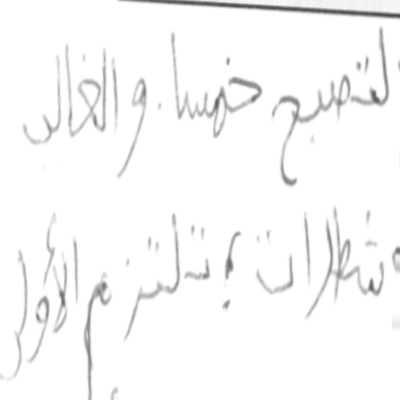 لتصبح خمسا. والغالب
شطرات؛ تلتزم الأول